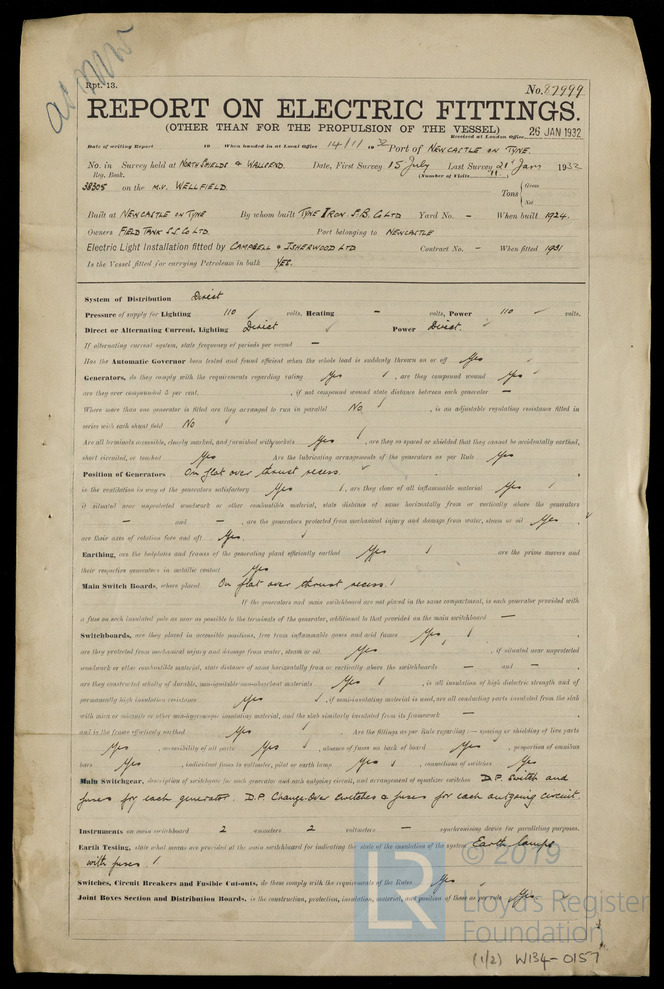 Rpt. 13.
No. 87999
REPORT ON ELECTRIC FITTINGS.
(OTHER THAN FOR THE PROPULSION OF THE VESSEL)
Received at London Office 26 JAN 1932
Date of writing Report 19 When handed in at Local Office 14/11 1932 Port of NEWCASTLE ON TYNE.
No. in Survey held at NORTH SHIELDS & WALLSEND. Date, First Survey 15 July Last Survey 21st Jany 1932
Reg. Book. (Number of Visits 11)
38305 on the M.V. WELLFIELD. Tons { Gross Net
Built at NEWCASTLE ON TYNE By whom built TYNE IRON S.B. CO LTD Yard No. - When built 1924.
Owners FIELD TANK S.S. CO LTD. Port belonging to NEWCASTLE
Electric Light Installation fitted by CAMPBELL & ISHERWOOD LTD Contract No. - When fitted 1931
Is the Vessel fitted for carrying Petroleum in bulk YES.
System of Distribution Direct
Pressure of supply for Lighting 110 volts, Heating - volts, Power 110 volts.
Direct or Alternating Current, Lighting Direct Power Direct.
If alternating current system, state frequency of periods per second —
Has the Automatic Governor been tested and found efficient when the whole load is suddenly thrown on or off Yes
Generators, do they comply with the requirements regarding rating Yes, are they compound wound Yes
are they over compounded 5 per cent. , if not compound wound state distance between each generator —
Where more than one generator is fitted are they arranged to run in parallel No, is an adjustable regulating resistance fitted in
series with each shunt field No
Are all terminals accessible, clearly marked, and furnished with sockets Yes, are they so spaced or shielded that they cannot be accidentally earthed,
short circuited, or touched Yes Are the lubricating arrangements of the generators as per Rule Yes
Position of Generators On flat over thrust recess.
is the ventilation in way of the generators satisfactory Yes, are they clear of all inflammable material Yes
if situated near unprotected woodwork or other combustible material, state distance of same horizontally from or vertically above the generators
— and —, are the generators protected from mechanical injury and damage from water, steam or oil Yes.
are their axes of rotation fore and aft Yes.
Earthing, are the bedplates and frames of the generating plant efficiently earthed Yes are the prime movers and
their respective generators in metallic contact Yes
Main Switch Boards, where placed On flat over thrust recess.
If the generators and main switchboard are not placed in the same compartment, is each generator provided with
a fuse on each insulated pole as near as possible to the terminals of the generator, additional to that provided on the main switchboard —
Switchboards, are they placed in accessible positions, free from inflammable gases and acid fumes Yes,
are they protected from mechanical injury and damage from water, steam or oil Yes, if situated near unprotected
woodwork or other combustible material, state distance of same horizontally from or vertically above the switchboards — and —
are they constructed wholly of durable, non-ignitable non-absorbent materials Yes, is all insulation of high dielectric strength and of
permanently high insulation resistance Yes, if semi-insulating material is used, are all conducting parts insulated from the slab
with mica or micanite or other non-hygroscopic insulating material, and the slab similarly insulated from its framework —
and is the frame effectively earthed Yes Are the fittings as per Rule regarding :— spacing or shielding of live parts
Yes, accessibility of all parts Yes, absence of fuses on back of board Yes, proportion of omnibus
bars Yes, individual fuses to voltmeter, pilot or earth lamp Yes, connections of switches Yes
Main Switchgear, description of switchgear for each generator and each outgoing circuit, and arrangement of equalizer switches D.P. Switch and
fuses for each generator. D.P. Change-over switches & fuses for each outgoing circuit.
Instruments on main switchboard 2 ammeters 2 voltmeters — synchronising device for paralleling purposes.
Earth Testing, state what means are provided at the main switchboard for indicating the state of the insulation of the system Earth lamps
with fuses
Switches, Circuit Breakers and Fusible Cut-outs, do these comply with the requirements of the Rules Yes
Joint Boxes Section and Distribution Boards, is the construction, protection, insulation, material, and position of these as per rule Yes
LR
© 2019
Lloyd's Register
Foundation
(1/2) W134-0157